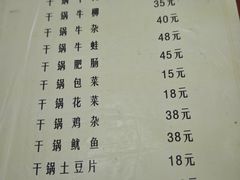 干锅牛柳 35元
干锅牛杂 40元
干锅牛蛙 48元
干锅肥肠 45元
干锅包菜 15元
干锅花菜 18元
干锅鸡杂 38元
干锅鱿鱼 38元
干锅土豆片 18元